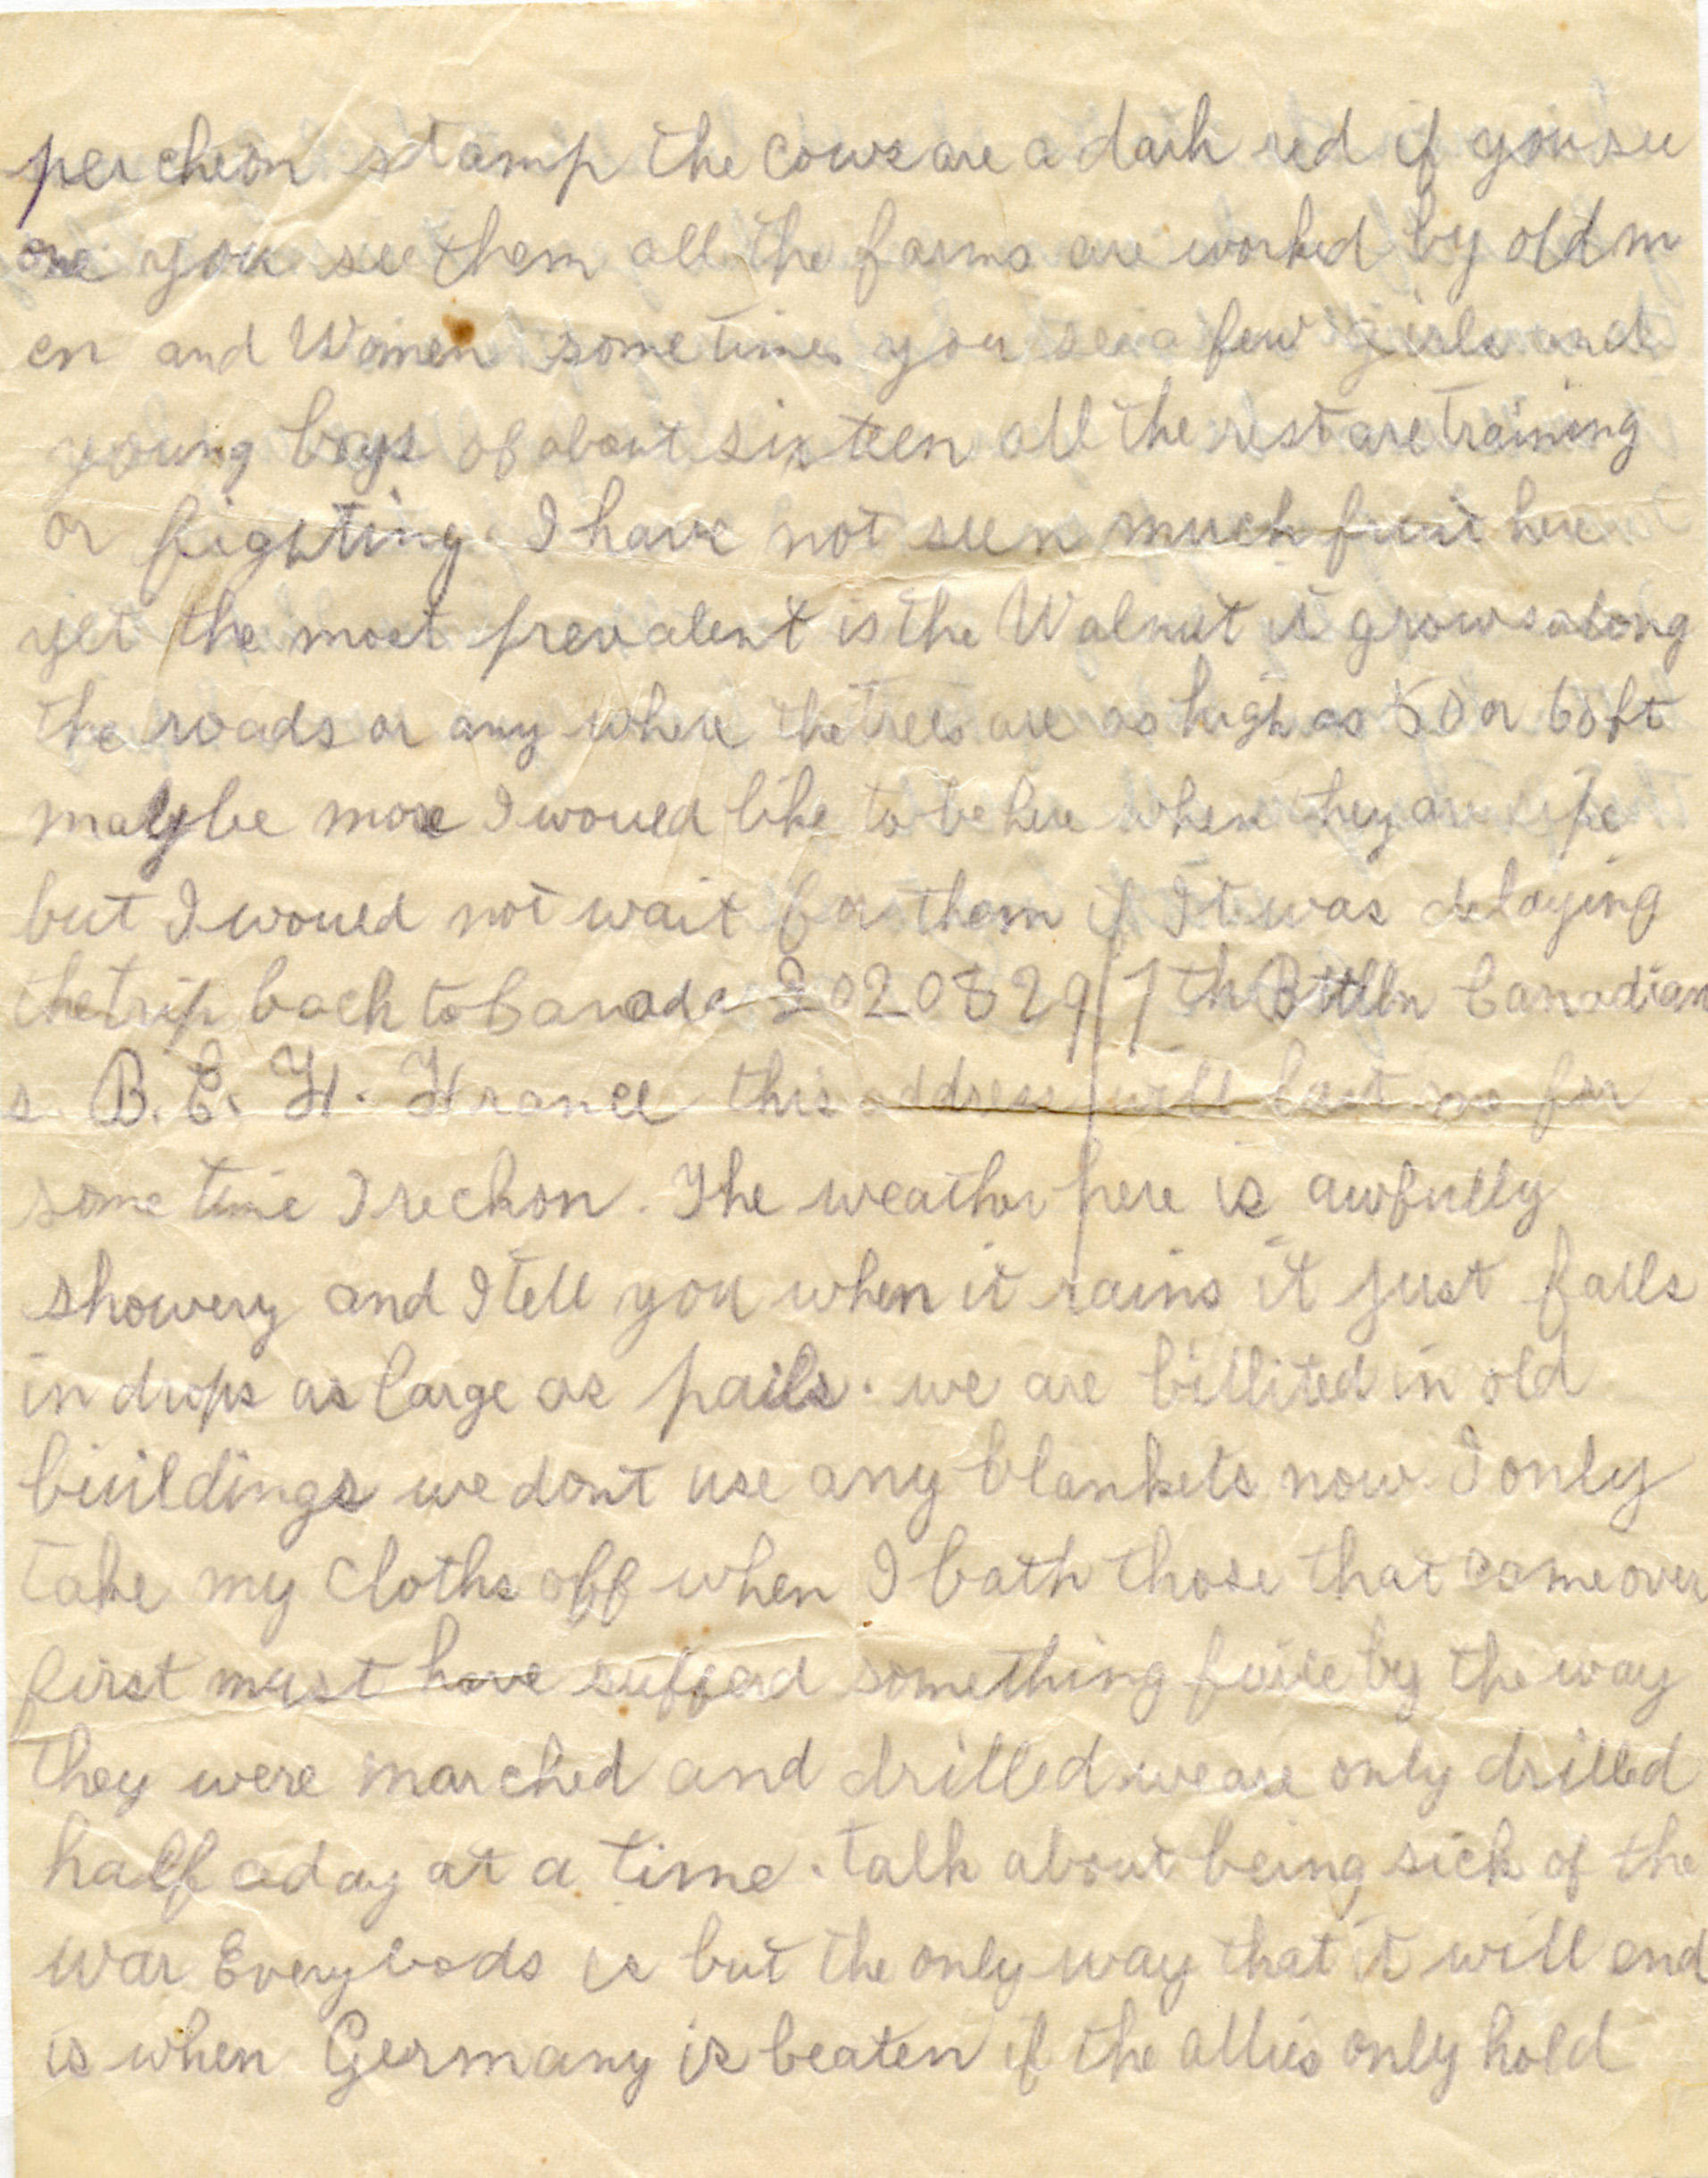 percheon stamp the cows are a dark red if you see
one you see them all the farms are worked by old m
en and Women sometimes you see a few girls and
young boys of about sixteen all the rest are training
or fighting. I have not seen much fruit here
yet the most prevalent is the Walnut it grows along
the roads or any where the trees are as high as 50 or 60 ft
maybe more I would like to be here when they are ripe
but I would not wait for them if It was delaying
the trip back to Canada 2020829 7th Canadian
s. B. E. F. France this address will last me for
some time I reckon. The weather here is awfully
showery and I tell you when it rains it just falls
in drops as large as pails. we are billited in old
buildings we dont use any blankets now. I only
take my cloths off when I bath those that come over
first must have sufferd something by the way
they were marched and drilled we are only drilled
half a day at a time. talk about being sick of the
war Everybods is but the only way that it will end
is when Germany is beaten if the allies only hold